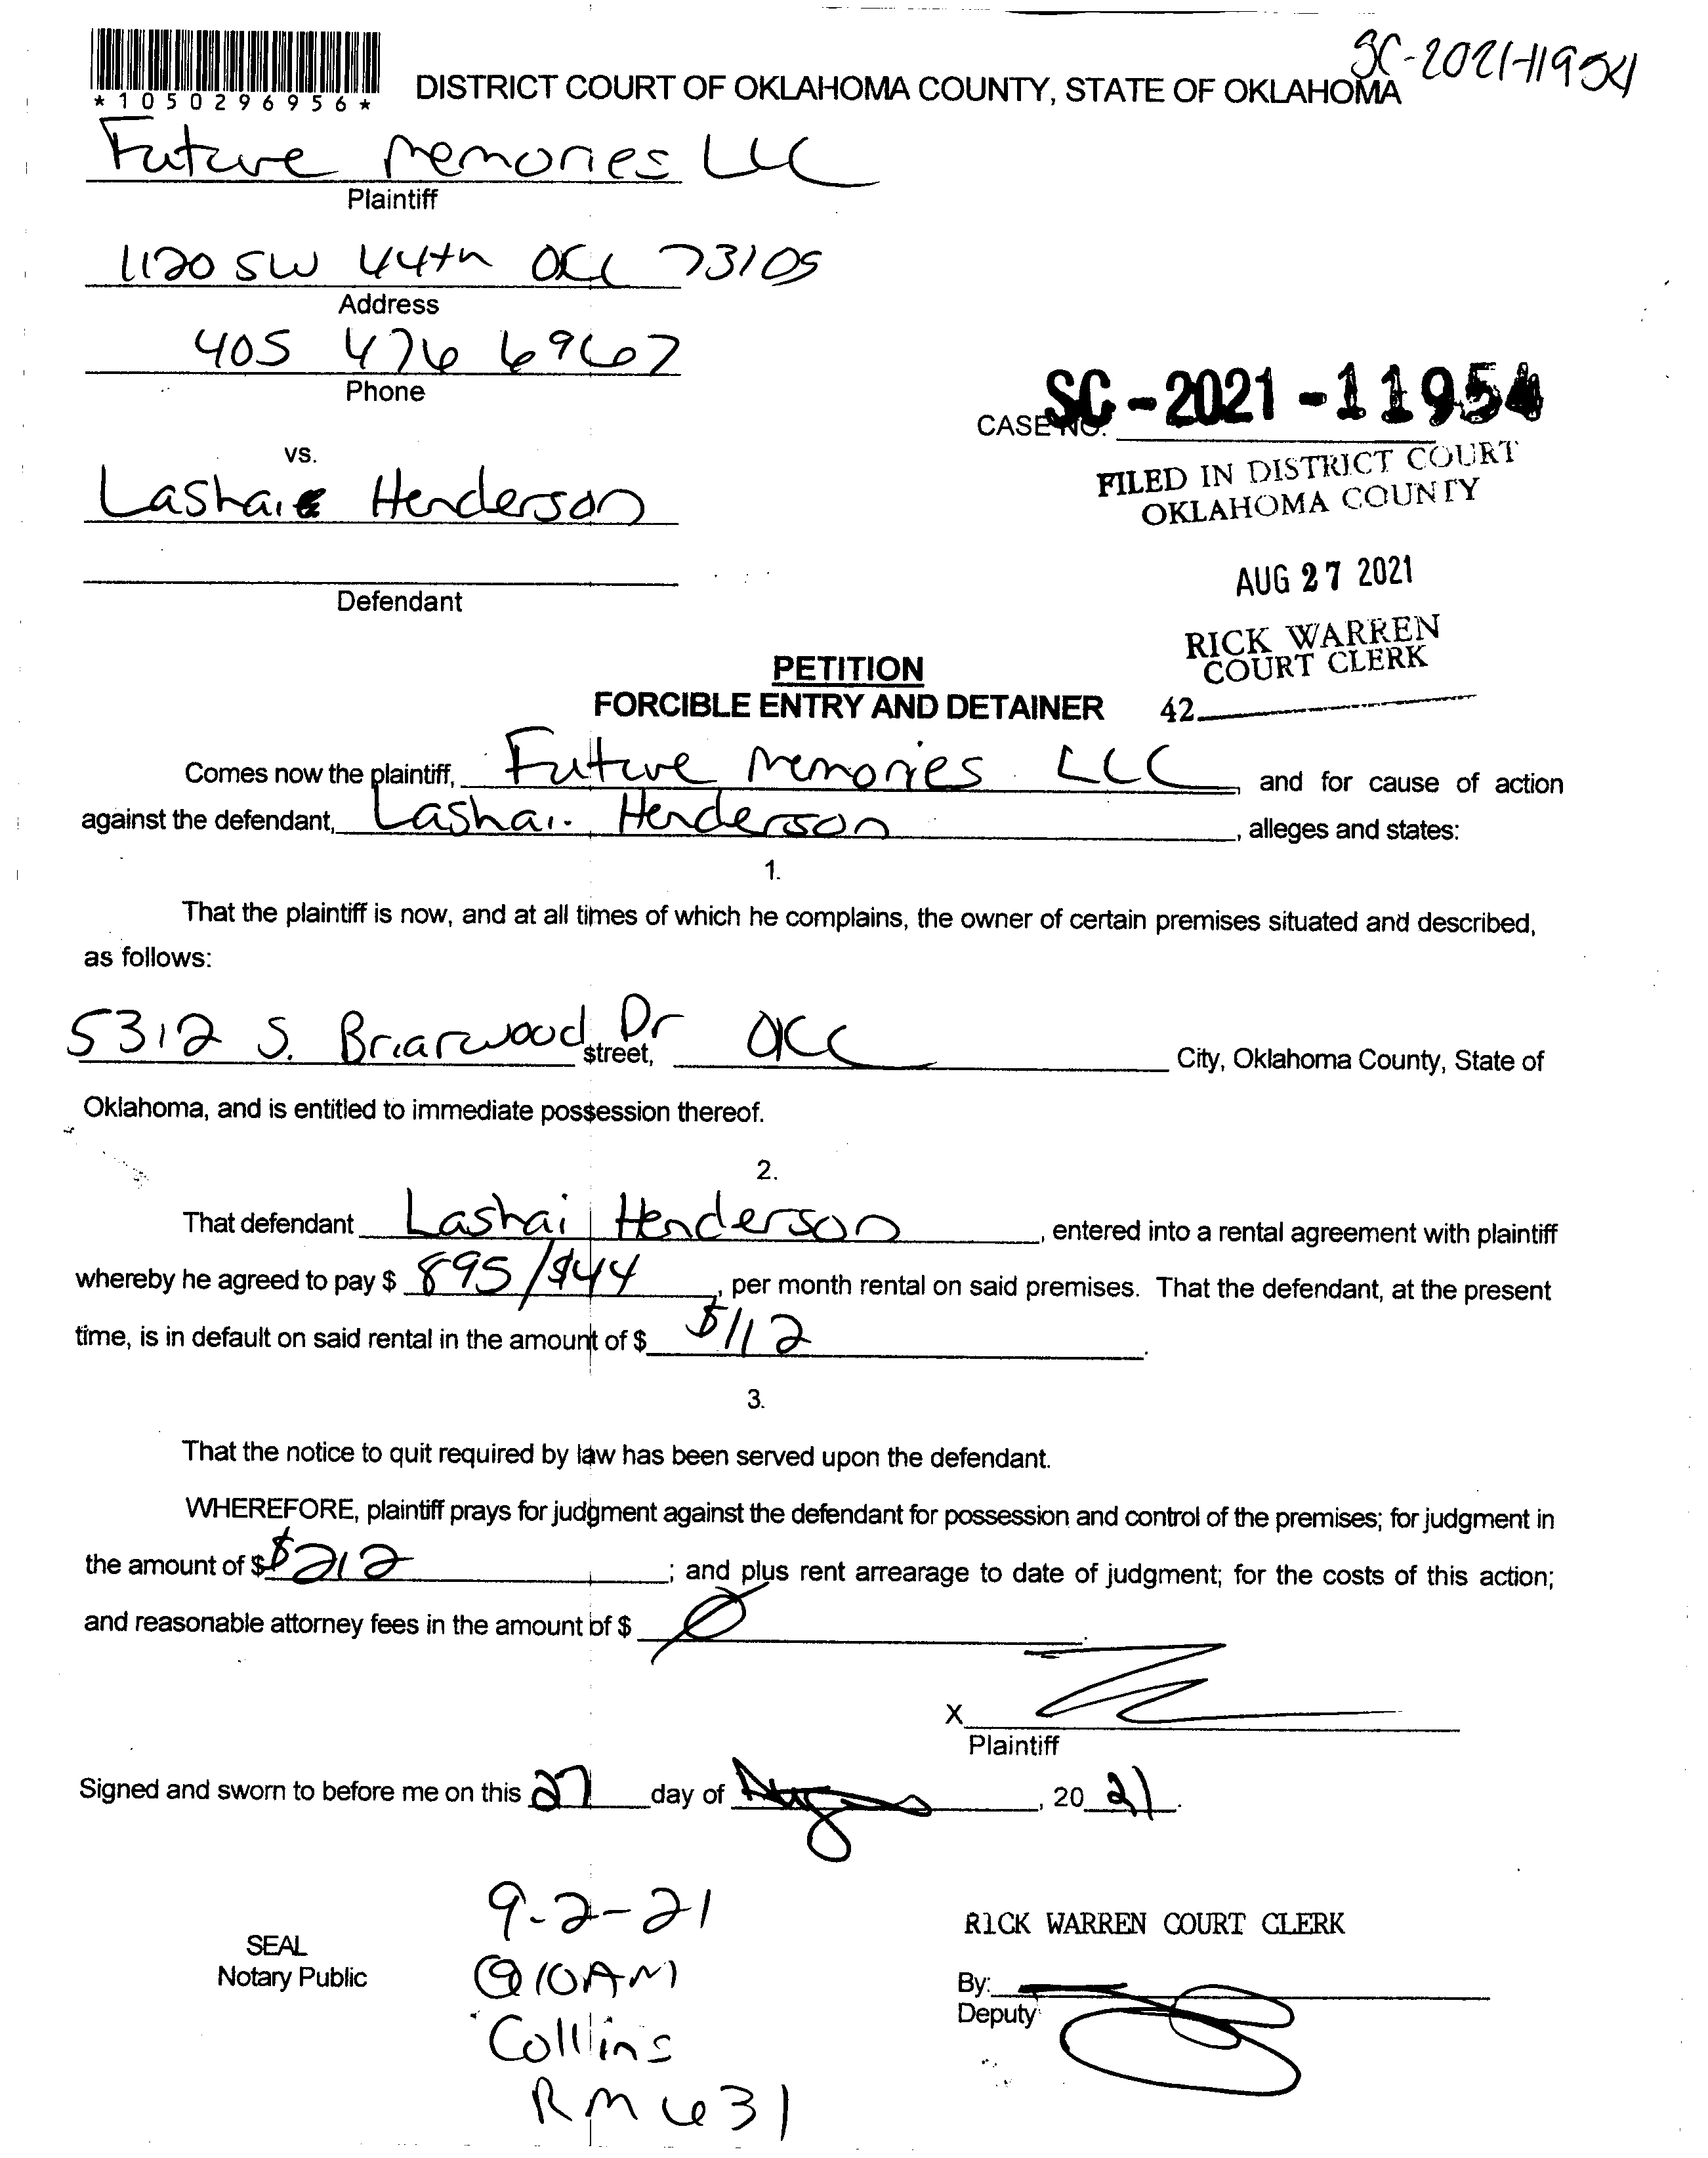 SC-2021-11954
*1050296956*
DISTRICT COURT OF OKLAHOMA COUNTY, STATE OF OKLAHOMA
Future Memories LLC
Plaintiff
1120 SW 44th OKC 73109
Address
405 476 6967
Phone
CASE NO. SC-2021-11954
vs.
FILED IN DISTRICT COURT
OKLAHOMA COUNTY
Lashai Henderson
AUG 27 2021
Defendant
RICK WARREN
COURT CLERK
42
PETITION
FORCIBLE ENTRY AND DETAINER
Comes now the plaintiff, Future Memories LLC, and for cause of action
against the defendant, Lashai Henderson, alleges and states:
1.
That the plaintiff is now, and at all times of which he complains, the owner of certain premises situated and described,
as follows:
5312 S. Briarwood Dr street, OKC City, Oklahoma County, State of
Oklahoma, and is entitled to immediate possession thereof.
2.
That defendant Lashai Henderson, entered into a rental agreement with plaintiff
whereby he agreed to pay $ 895/$44, per month rental on said premises. That the defendant, at the present
time, is in default on said rental in the amount of $ $112.
3.
That the notice to quit required by law has been served upon the defendant.
WHEREFORE, plaintiff prays for judgment against the defendant for possession and control of the premises; for judgment in
the amount of $ $212; and plus rent arrearage to date of judgment; for the costs of this action;
and reasonable attorney fees in the amount of $ Ø.
X
Plaintiff
Signed and sworn to before me on this 27 day of August, 2021.
9-2-21
RICK WARREN COURT CLERK
SEAL
Notary Public
@10AM
By:
Deputy
Collins
RM 631